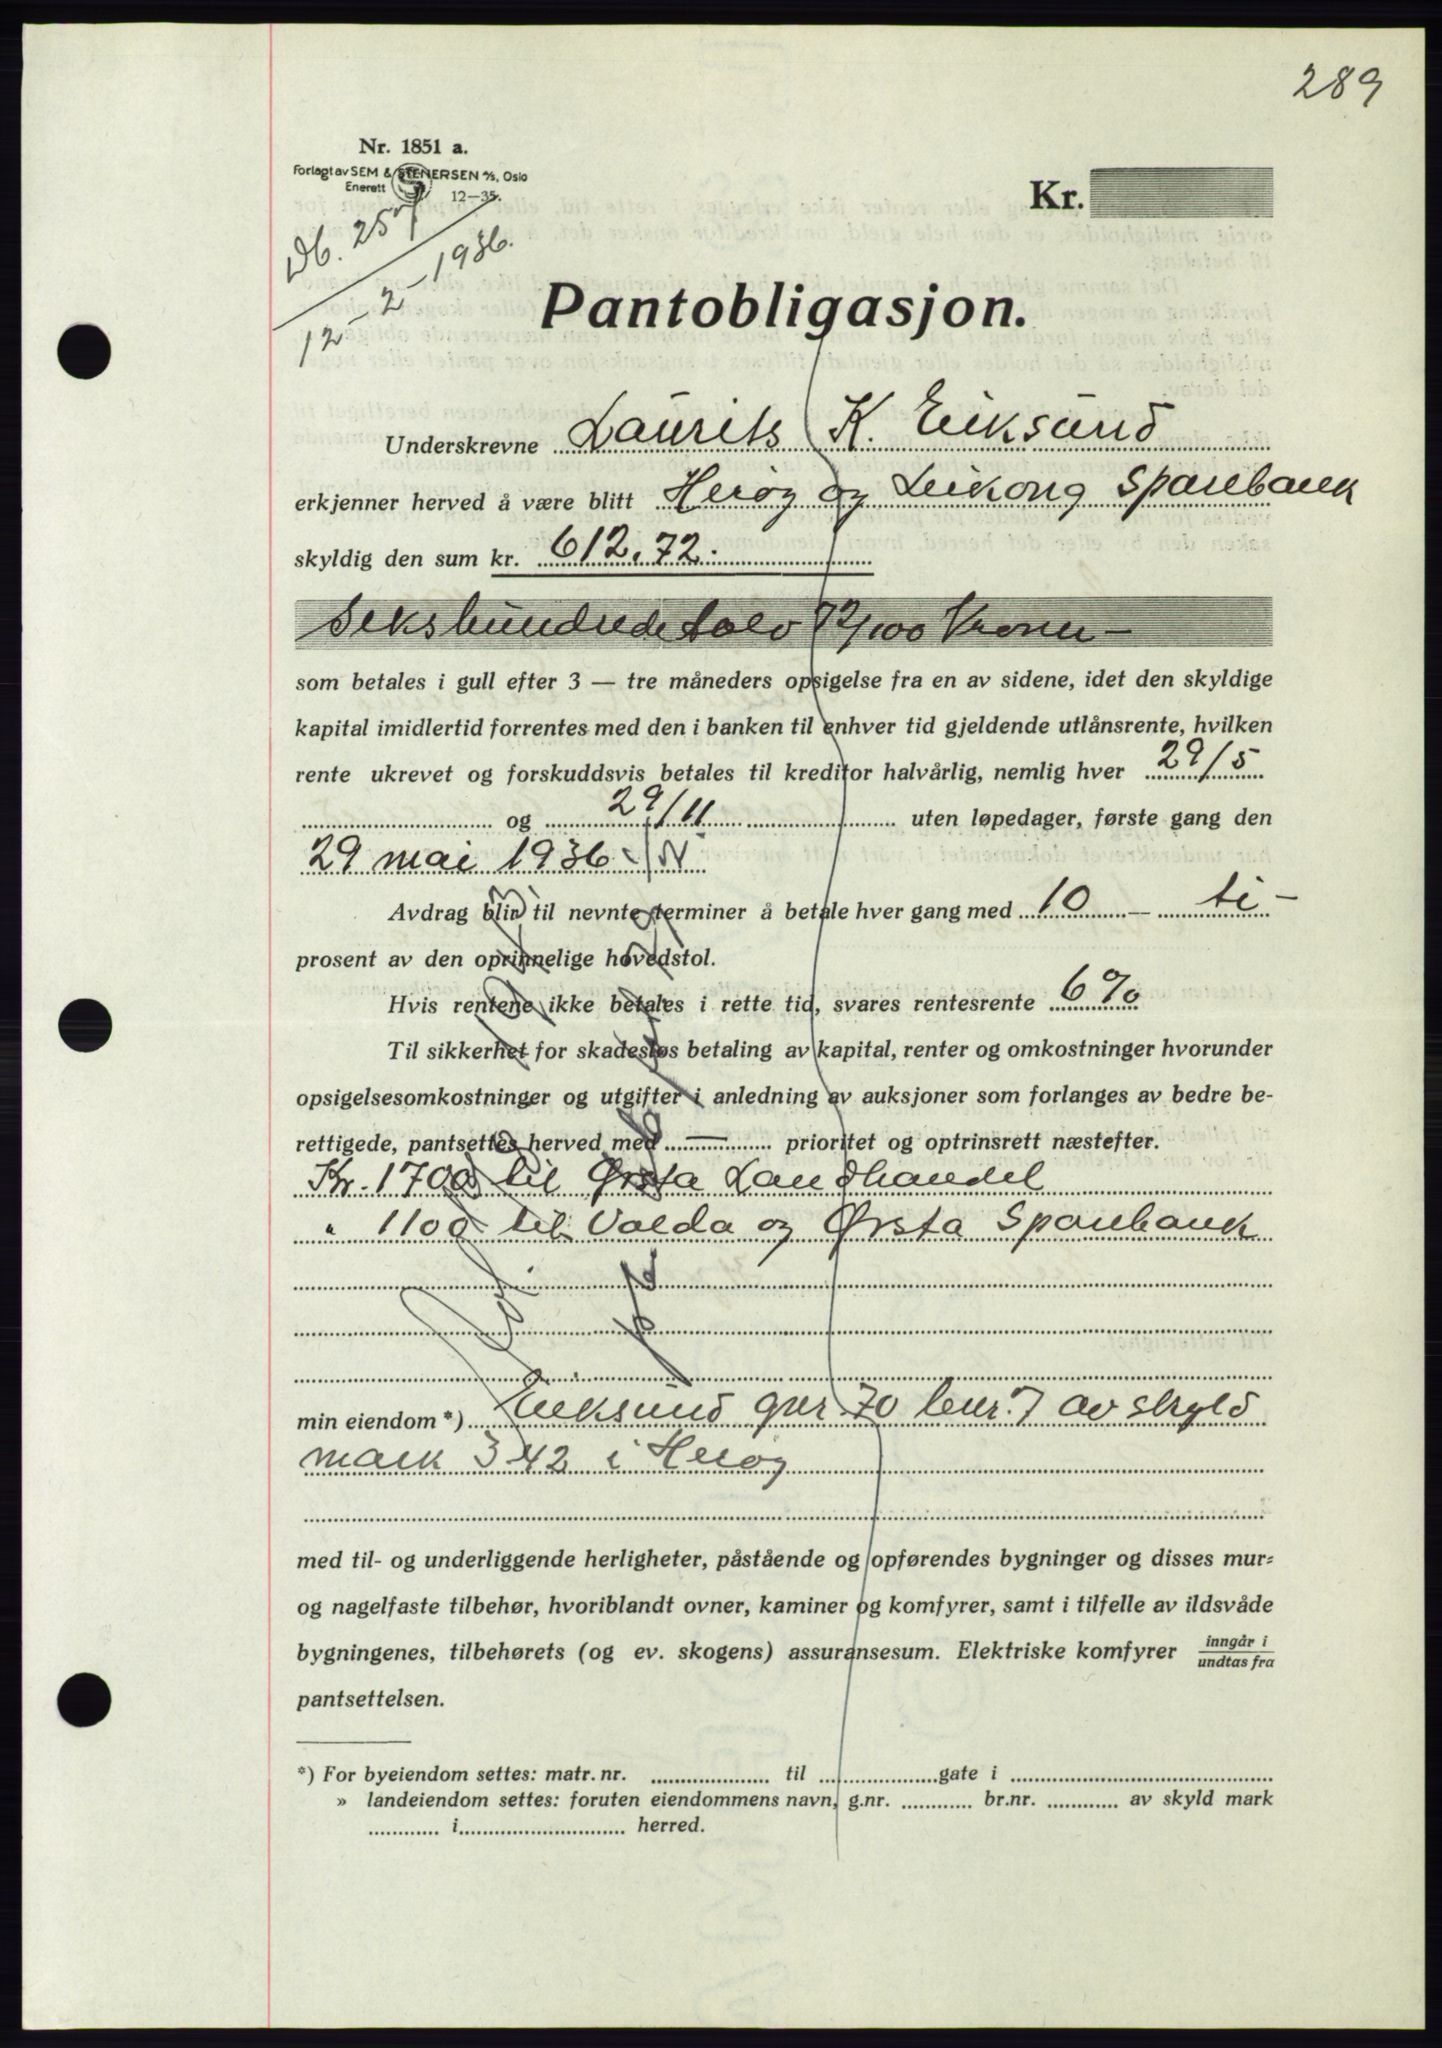 289
Nr. 1851 a.
Forlagt av SEM & STENERSEN A/S, Oslo
Enerett 12—35.
Kr.
Db. 257
12-2-1936.
Pantobligasjon.
Underskrevne Laurits K. Eiksund
erkjenner herved å være blitt Herøy og Leikong Sparebank
skyldig den sum kr. 612.72.
Sekshundredetolv 72/100 Kroner —
som betales i gull efter 3 — tre måneders opsigelse fra en av sidene, idet den skyldige
kapital imidlertid forrentes med den i banken til enhver tid gjeldende utlånsrente, hvilken
rente ukrevet og forskuddsvis betales til kreditor halvårlig, nemlig hver 29/5
og 29/11 uten løpedager, første gang den
29 mai 1936
Avdrag blir til nevnte terminer å betale hver gang med 10 — ti —
prosent av den oprinnelige hovedstol.
Hvis rentene ikke betales i rette tid, svares rentesrente 6%
Til sikkerhet for skadesløs betaling av kapital, renter og omkostninger hvorunder
opsigelsesomkostninger og utgifter i anledning av auksjoner som forlanges av bedre be-
rettigede, pantsettes herved med — prioritet og optrinsrett næstefter.
Kr. 1700 til Ørsta Landhandel
" 1100 til Volda og Ørsta Sparebank
min eiendom *) Eiksund gnr. 70 bnr. 7 av skyld
mark 3.42 i Herøy
med til- og underliggende herligheter, påstående og opførendes bygninger og disses mur-
og nagelfaste tilbehør, hvoriblandt ovner, kaminer og komfyrer, samt i tilfelle av ildsvåde
bygningenes, tilbehørets (og ev. skogens) assuransesum. Elektriske komfyrer inngår i / undtas fra
pantsettelsen.
*) For byeiendom settes: matr. nr. til gate i
» landeiendom settes: foruten eiendommens navn, g.nr. br.nr. av skyld mark
i herred.